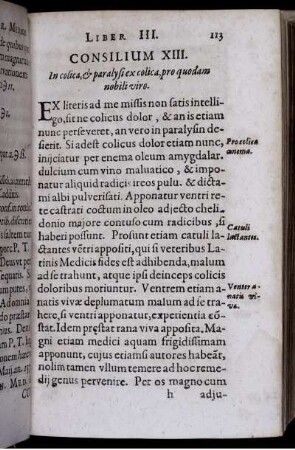 LIBER III. 113
CONSILIUM XIII.
In colica, & paralysi ex colica, pro quodam
nobili viro.
EX literis ad me missis non satis intelli-
go, sit ne colicus dolor, & an is etiam
nunc perseveret, an vero in paralysin de-
sierit. Si adest colicus dolor etiam nunc,
inijciatur per enema oleum amygdalar.
dulcium cum vino maluatico, & impo-
natur aliquid radicis ireos pulu. & dicta-
mi albi pulverisati. Apponatur ventri re-
te castrati coctum in oleo adjecto cheli-
donio majore contuso cum radicibus, si
haberi possunt. Prosunt etiam catuli la-
ctantes vētri appositi, qui si veteribus La-
tinis Medicis fides est adhibenda, malum
ad se trahunt, atque ipsi deinceps colicis
doloribus moriuntur. Ventrem etiam a-
natis vivæ deplumatum malum ad se tra-
here, si ventri apponatur, experientia eō-
stat. Idem prestat rana viva apposita. Ma-
gni etiam medici aquam frigidissimam
apponunt, cujus etiamsi autores habeāt,
nolim tamen vllum temere ad hoc reme-
dij genus pervenire. Per os magno cum
h adju-
Pro colica
enema.
Catuli
lactantes.
Venter a-
natis vi-
va.